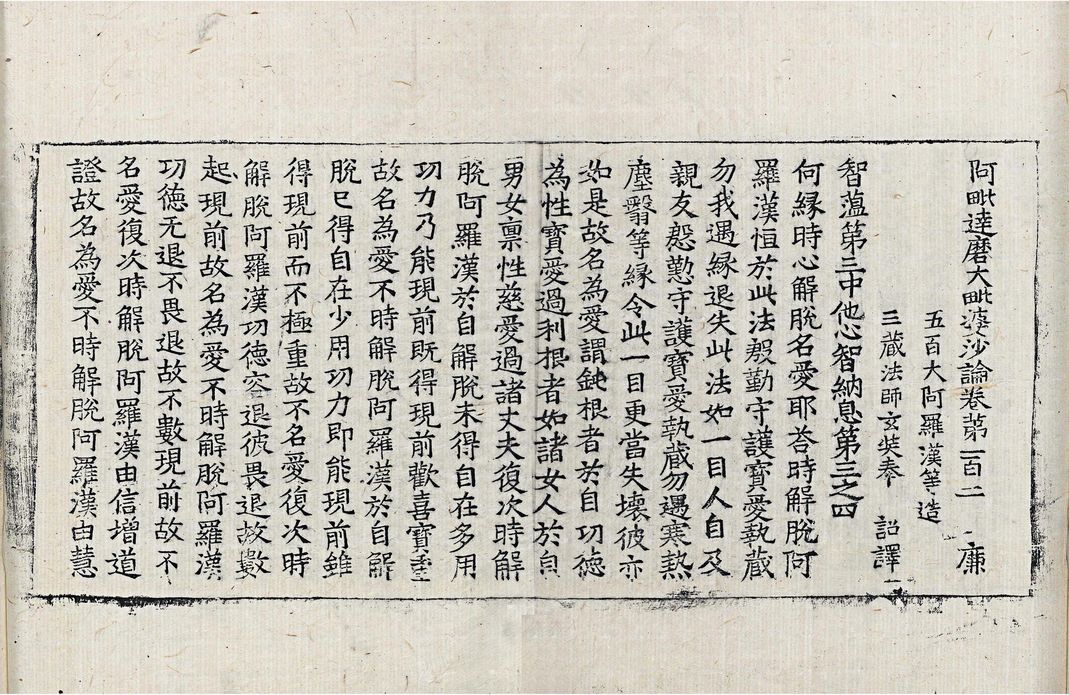 阿毗達磨大毗婆沙論卷苐一百二　廉
五百大阿羅漢等造
三藏法師玄奘奉　詔譯
智蘊第三中他心智納息第三之四
何縁時心解脫名愛耶荅時解脫阿
羅漢恒於此法慇勤守護寶愛執藏
勿我遇縁退失此法如一目人自及
親友慇懃守護寶愛執藏勿遇寒熱
塵翳等縁令此一目更當失壞彼亦
如是故名為愛謂鈍根者於自功德
為性寶愛過利根者如諸女人於自
男女禀性慈愛過諸丈夫復次時解
脫阿羅漢於自解脫未得自在多用
功力乃能現前既得現前歡喜寶重
故名為愛不時解脫阿羅漢於自解
脫已得自在少用功力即能現前雖
得現前而不極重故不名愛復次時
解脫阿羅漢功德容退彼畏退故數
起現前故名為愛不時解脫阿羅漢
功德无退不畏退故不數現前故不
名愛復次時解脫阿羅漢由信增道
證故名為愛不時解脫阿羅漢由慧